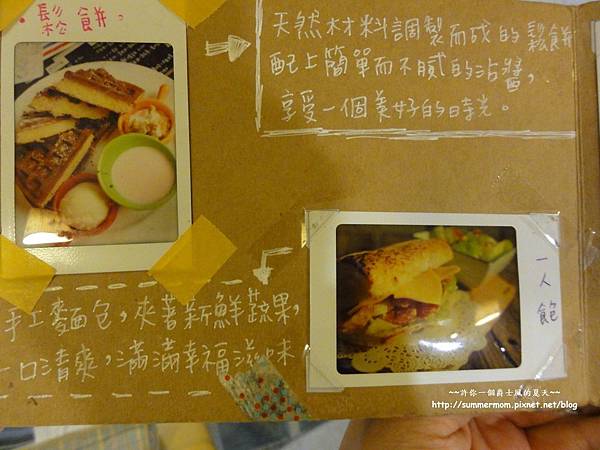 ·鬆餅,
天然材料調製而成的鬆餅
配上簡單而不膩的沾醬,
享受一個美好的時光。
一人飽
手工麵包,夾著新鮮蔬果,
一口清爽,滿滿幸福滋味
~~許你一個爵士風的夏天~~
http://summermom.pixnet.net/blog